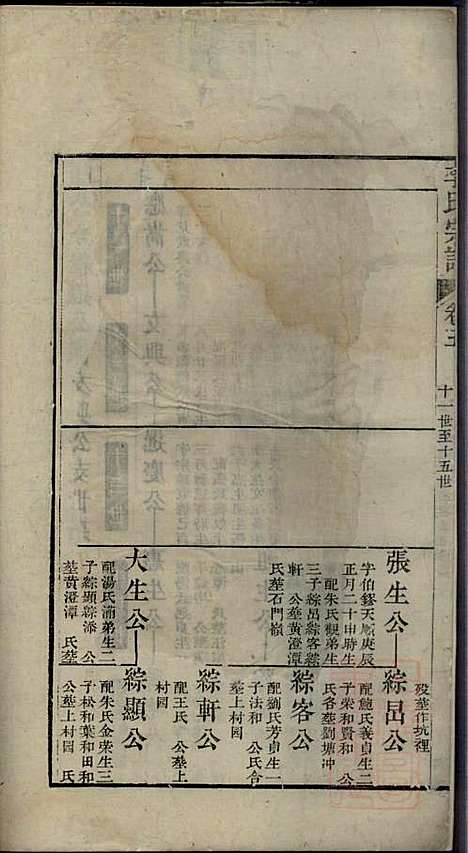 李氏宗譜
卷五
十一世至十五世
歿葬作坑裡
張生公
字伯鏐天順庚辰
正月二十申時生
配朱氏觀弟生
三子綜呂綜客綜
軒 公葬黃澄潭
氏葬石門嶺
綜呂公
配鮑氏義貞生二
子荣和賢和 公
氏各葬劉塘冲
綜客公
配劉氏芳貞生一
子法和 公氏合
葬上村园
綜軒公
配王氏 公葬上
村园
大生公
配湯氏浦弟生二
子綜顯綜添 公
葬黃澄潭 氏葬
綜顯公
配朱氏金荣生三
子松和葉和田和
公葬上村园 氏